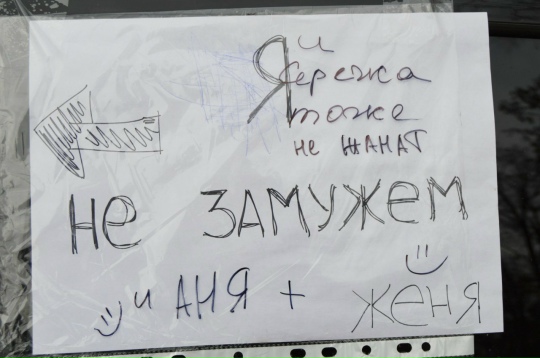 Я и
Сережка
тоже
не ЖАНАТ
не ЗАМУЖЕМ
и АНЯ + женя